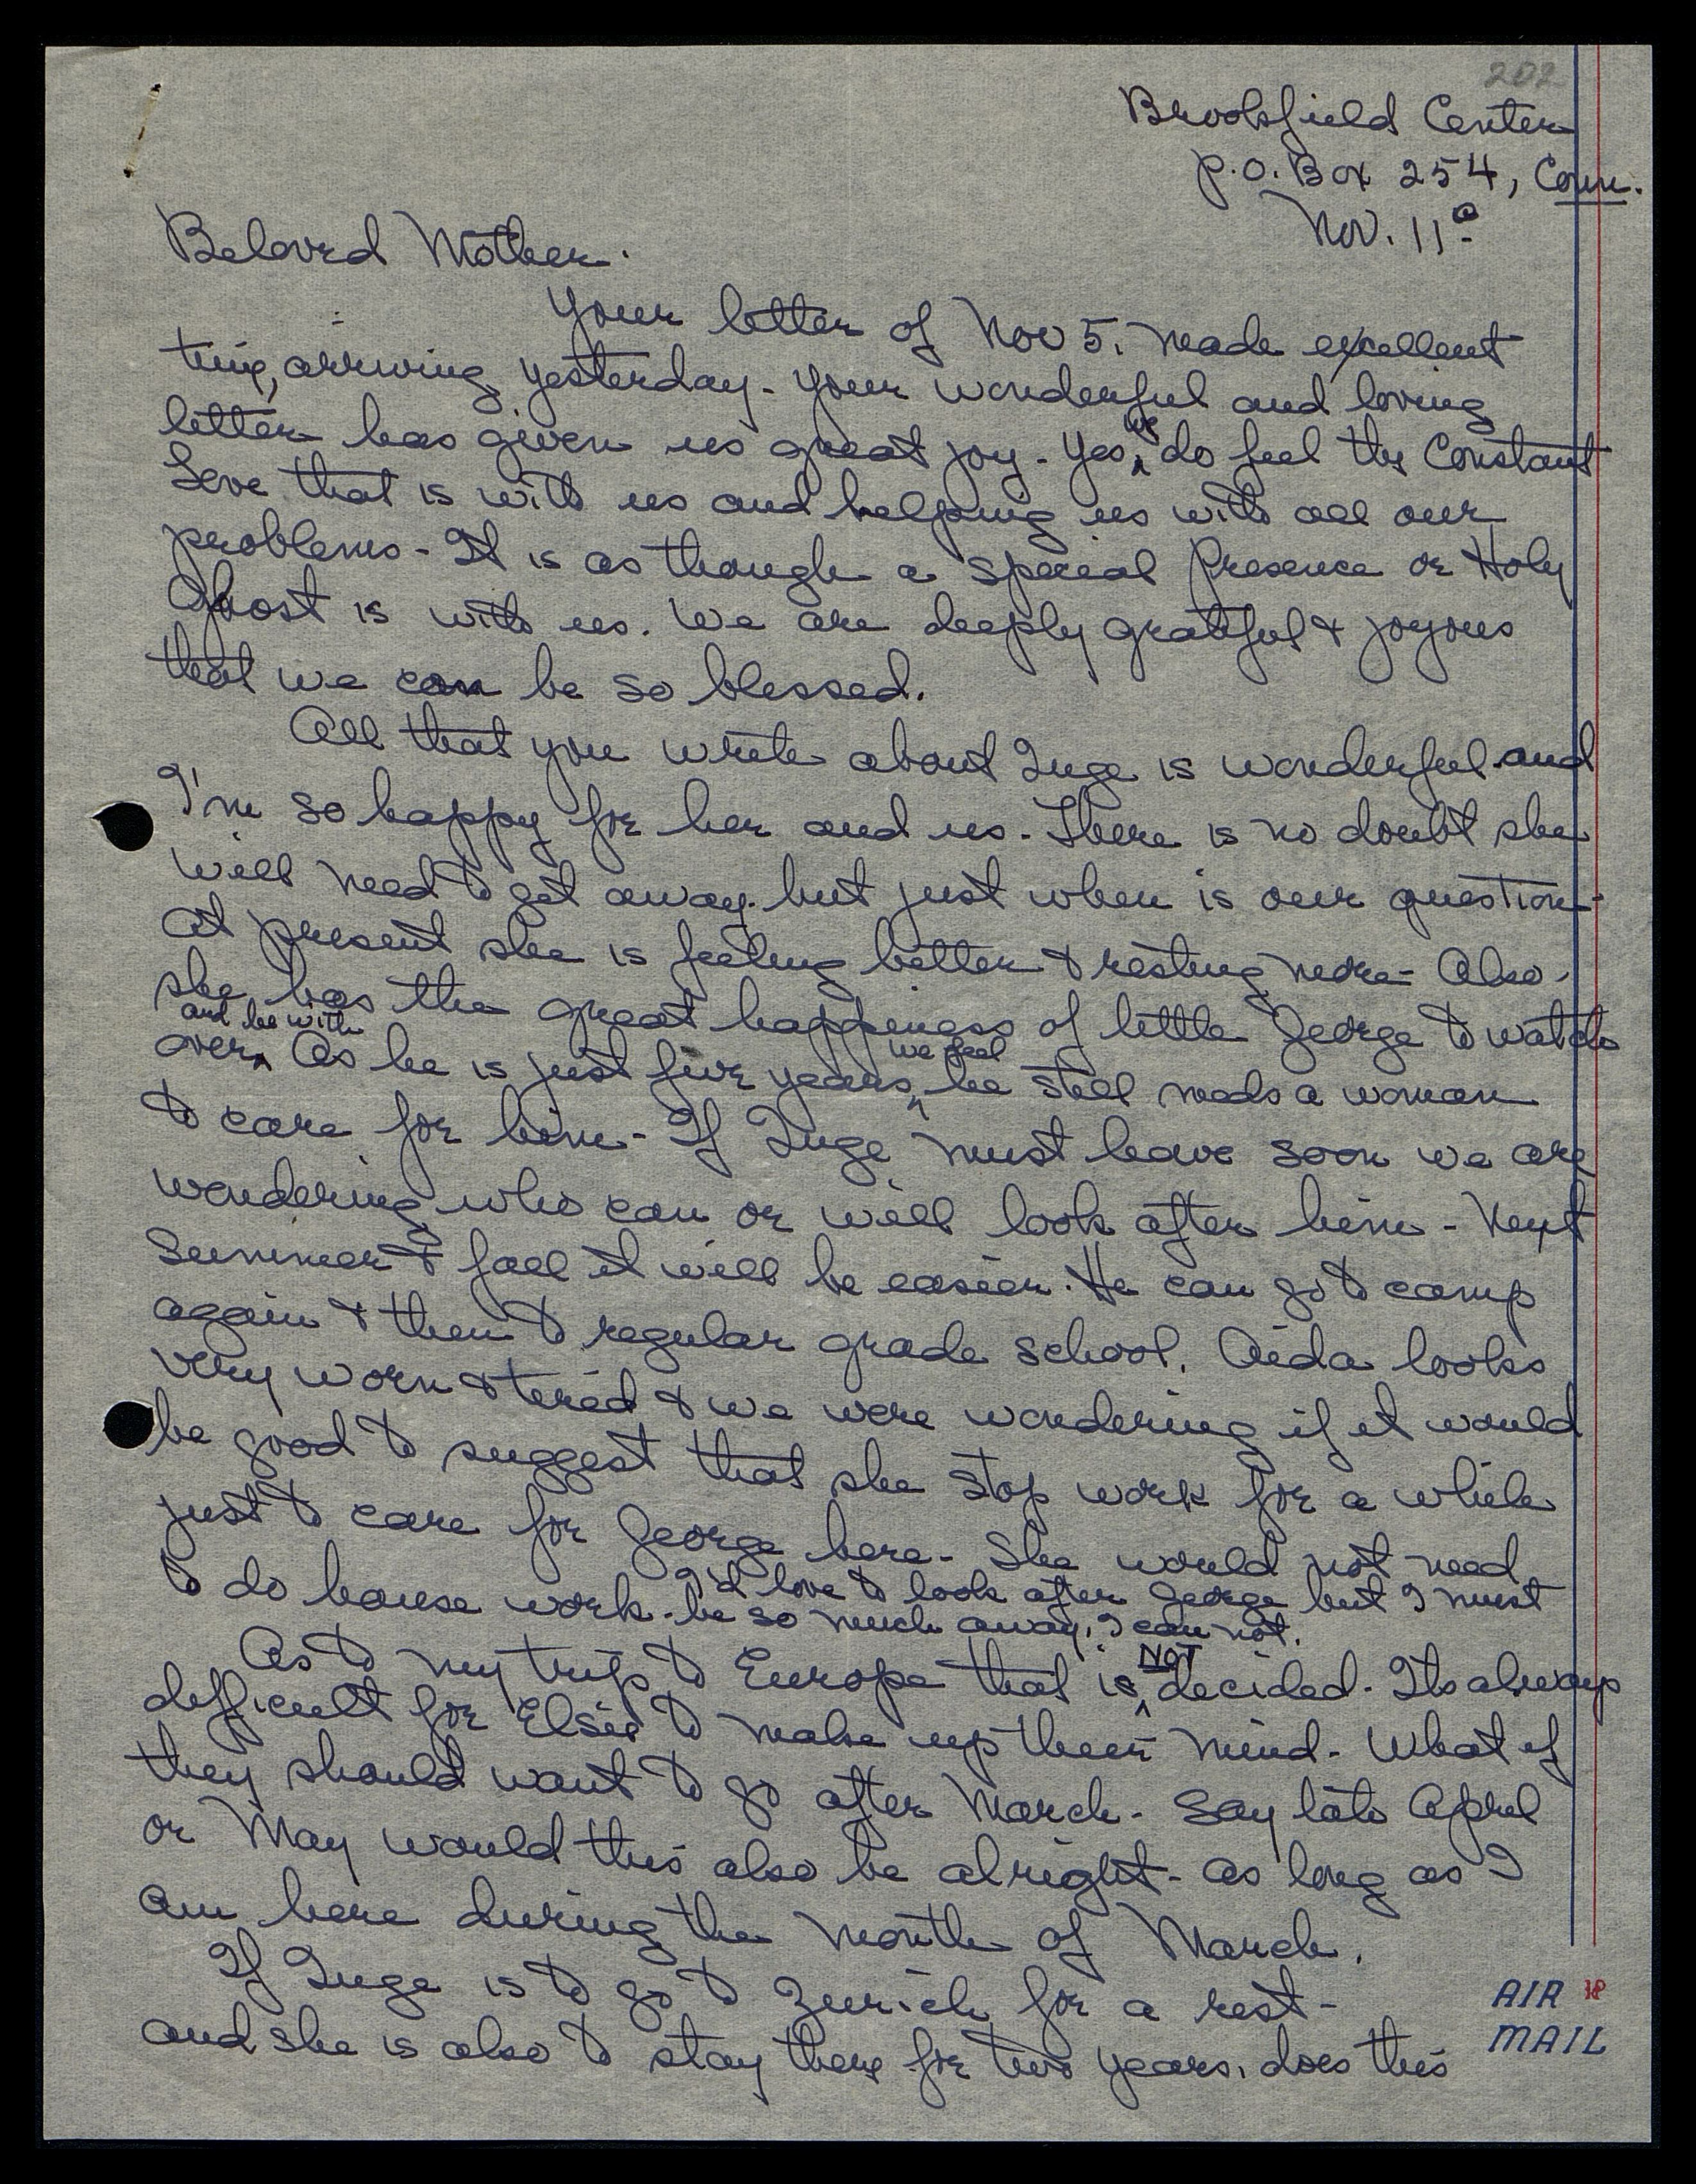 202
Brookfield Center
P.O. Box 254, Conn.
Nov. 11º
Beloved Mother.
Your letter of Nov 5. made excellent
time, arriving yesterday - your wonderful and loving
letter has given us great joy - Yes, we do feel the Constant
Love that is with us and helping us with all our
problems - It is as though a special Presence or Holy
Ghost is with us. We are deeply grateful & joyous
that we can be so blessed.
All that you write about Inge is wonderful and
I'm so happy for her and us - There is no doubt she
will need to get away. but just when is our question -
At present she is feeling better & resting more - Also
she has the great happiness of little George to watch
over, and be with As he is just five years, we feel he still needs a woman
to care for him - If Inge must leave soon we are
wondering who can or will look after him - Next
Summer & fall it will be easier. He can go to camp
again & then to regular grade school. Aida looks
very worn & tired & we were wondering if it would
be good to suggest that she stop work for a while
just to care for George here - She would not need
to do house work - I'd love to look after George but I must
be so much away, I can not.
As to my trip to Europe that is NOT decided - Its always
difficult for Elsie to make up their mind - What if
they should want to go after March - say late April
or May would this also be alright - as long as I
am here during the month of March.
If Inge is to go to Zurich for a rest -
and she is also to stay there for two years, does this
AIR
MAIL